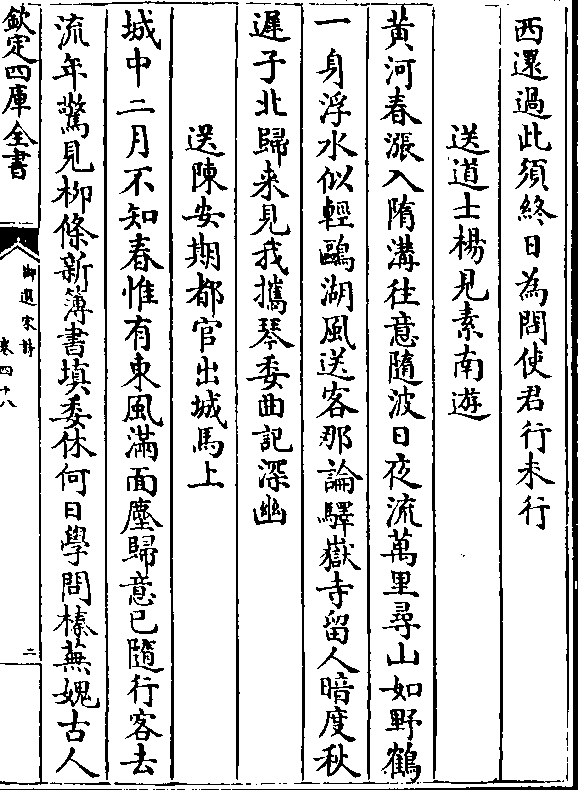 西還過此須終日為問使君行未行
送道士楊見素南遊
黄河春漲入隋溝往意隨波日夜流萬里尋山如野鶴
一身浮水似輕鷗湖風送客那論驛嶽寺留人暗度秋
遲子北歸来見我攜琴委曲記深幽
送陳安期都官出城馬上
城中二月不知春惟有東風滿面塵歸意已隨行客去
流年驚見柳條新簿書填委休何日學問榛蕪媿古人
欽定四庫全書
御選宋詩
卷四十八
二